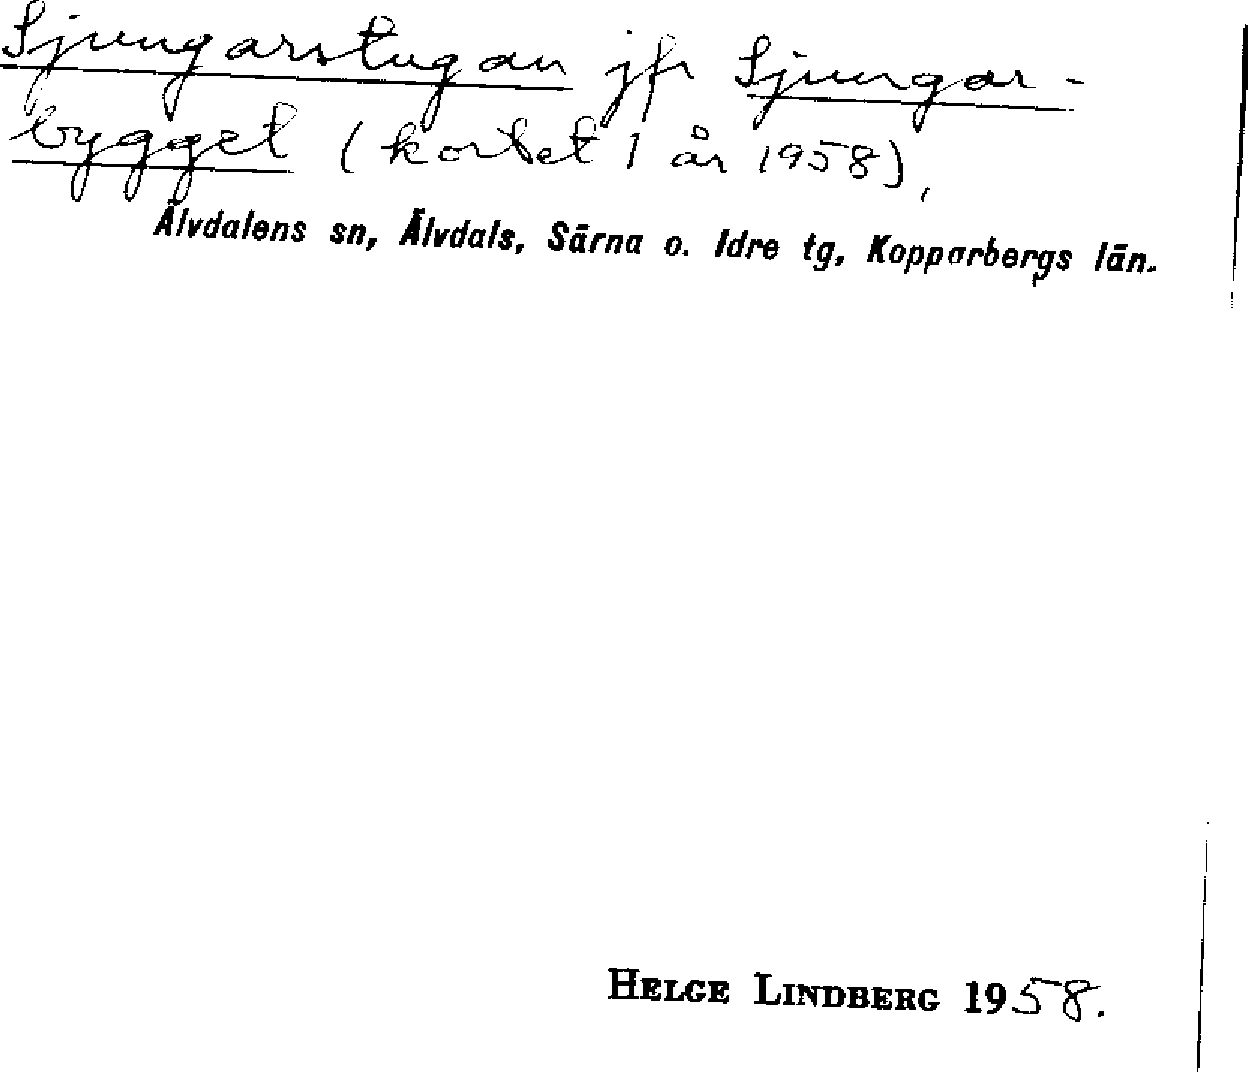 Sjungarstugan jfr Sjungar-
bygget (kortet 1 år 1958),
Älvdalens sn, Älvdals, Särna o. Idre tg, Kopparbergs län.
HELGE LINDBERG 1958.